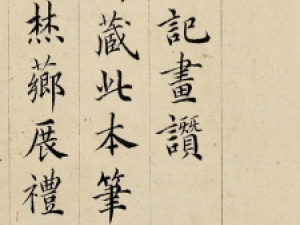 記畫讚
藏此本筆
焚薌展禮